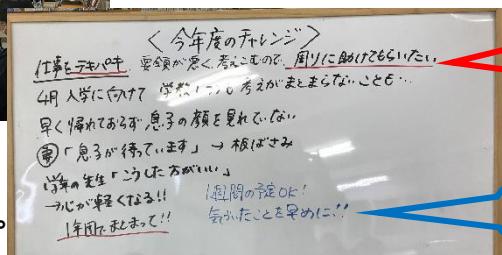 <今年度のチャレンジ>
仕事をテキパキ 要領が悪く、考えこむので、周りに助けてもらいたい
4月 入学に向けて 考えがまとまらないことも…
早く帰れておらず息子の顔を見れていない
「息子が待っています」→ 板ばさみ
学年の先生「こうした方がいい」
→心が軽くなる!!
1週間の予定OK!
気づいたことを早めに!!
1年団でまとまって!!